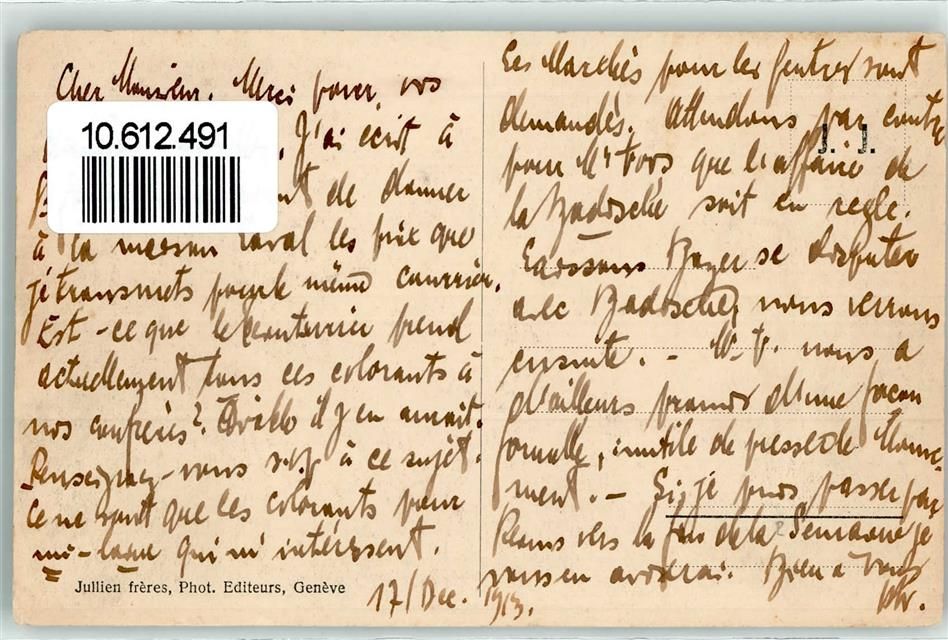 Cher Monsieur. Merci pour vos
10.612.491
J'ai écrit à
de donner
à la maison Laval les prix que
je transmets par le même courrier.
Est-ce que le prend
actuellement tous ces colorants à
nos confrères? il y en aurait.
Renseignez-vous s.v.p. à ce sujet.
Ce ne sont que les colorants pour
mi-laine qui m'intéressent.
Jullien frères, Phot. Editeurs, Genève
17/Dec. 1913.
Les Marchés pour les feutres sont
demandés. Attendons par contre
J. J.
pour Mr que l'affaire de
la soit en regle.
Laissons se disputer
avec nous verrons
ensuite. - nous a
d'ailleurs promis d'une façon
formelle, inutile de presser le Mouve-
ment. - Si je puis passer par
Reims vers la fin de la Semaine je
vous en aviserai. Bien à vous